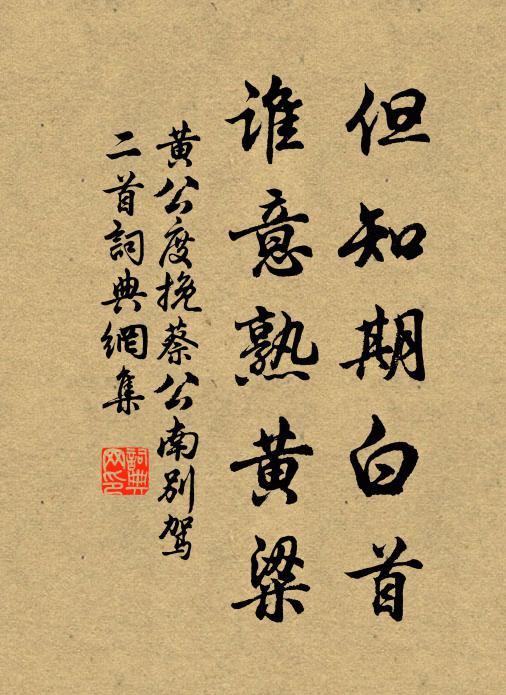 但知期白首
谁意熟黄粱
黄公度挽蔡公南别驾
二首詞典網集
詞典網印